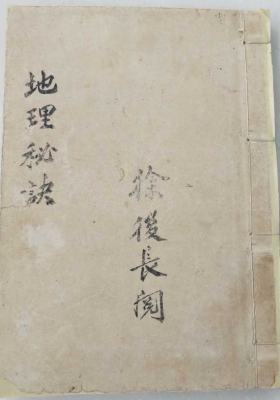 徐後長閲
地理秘訣